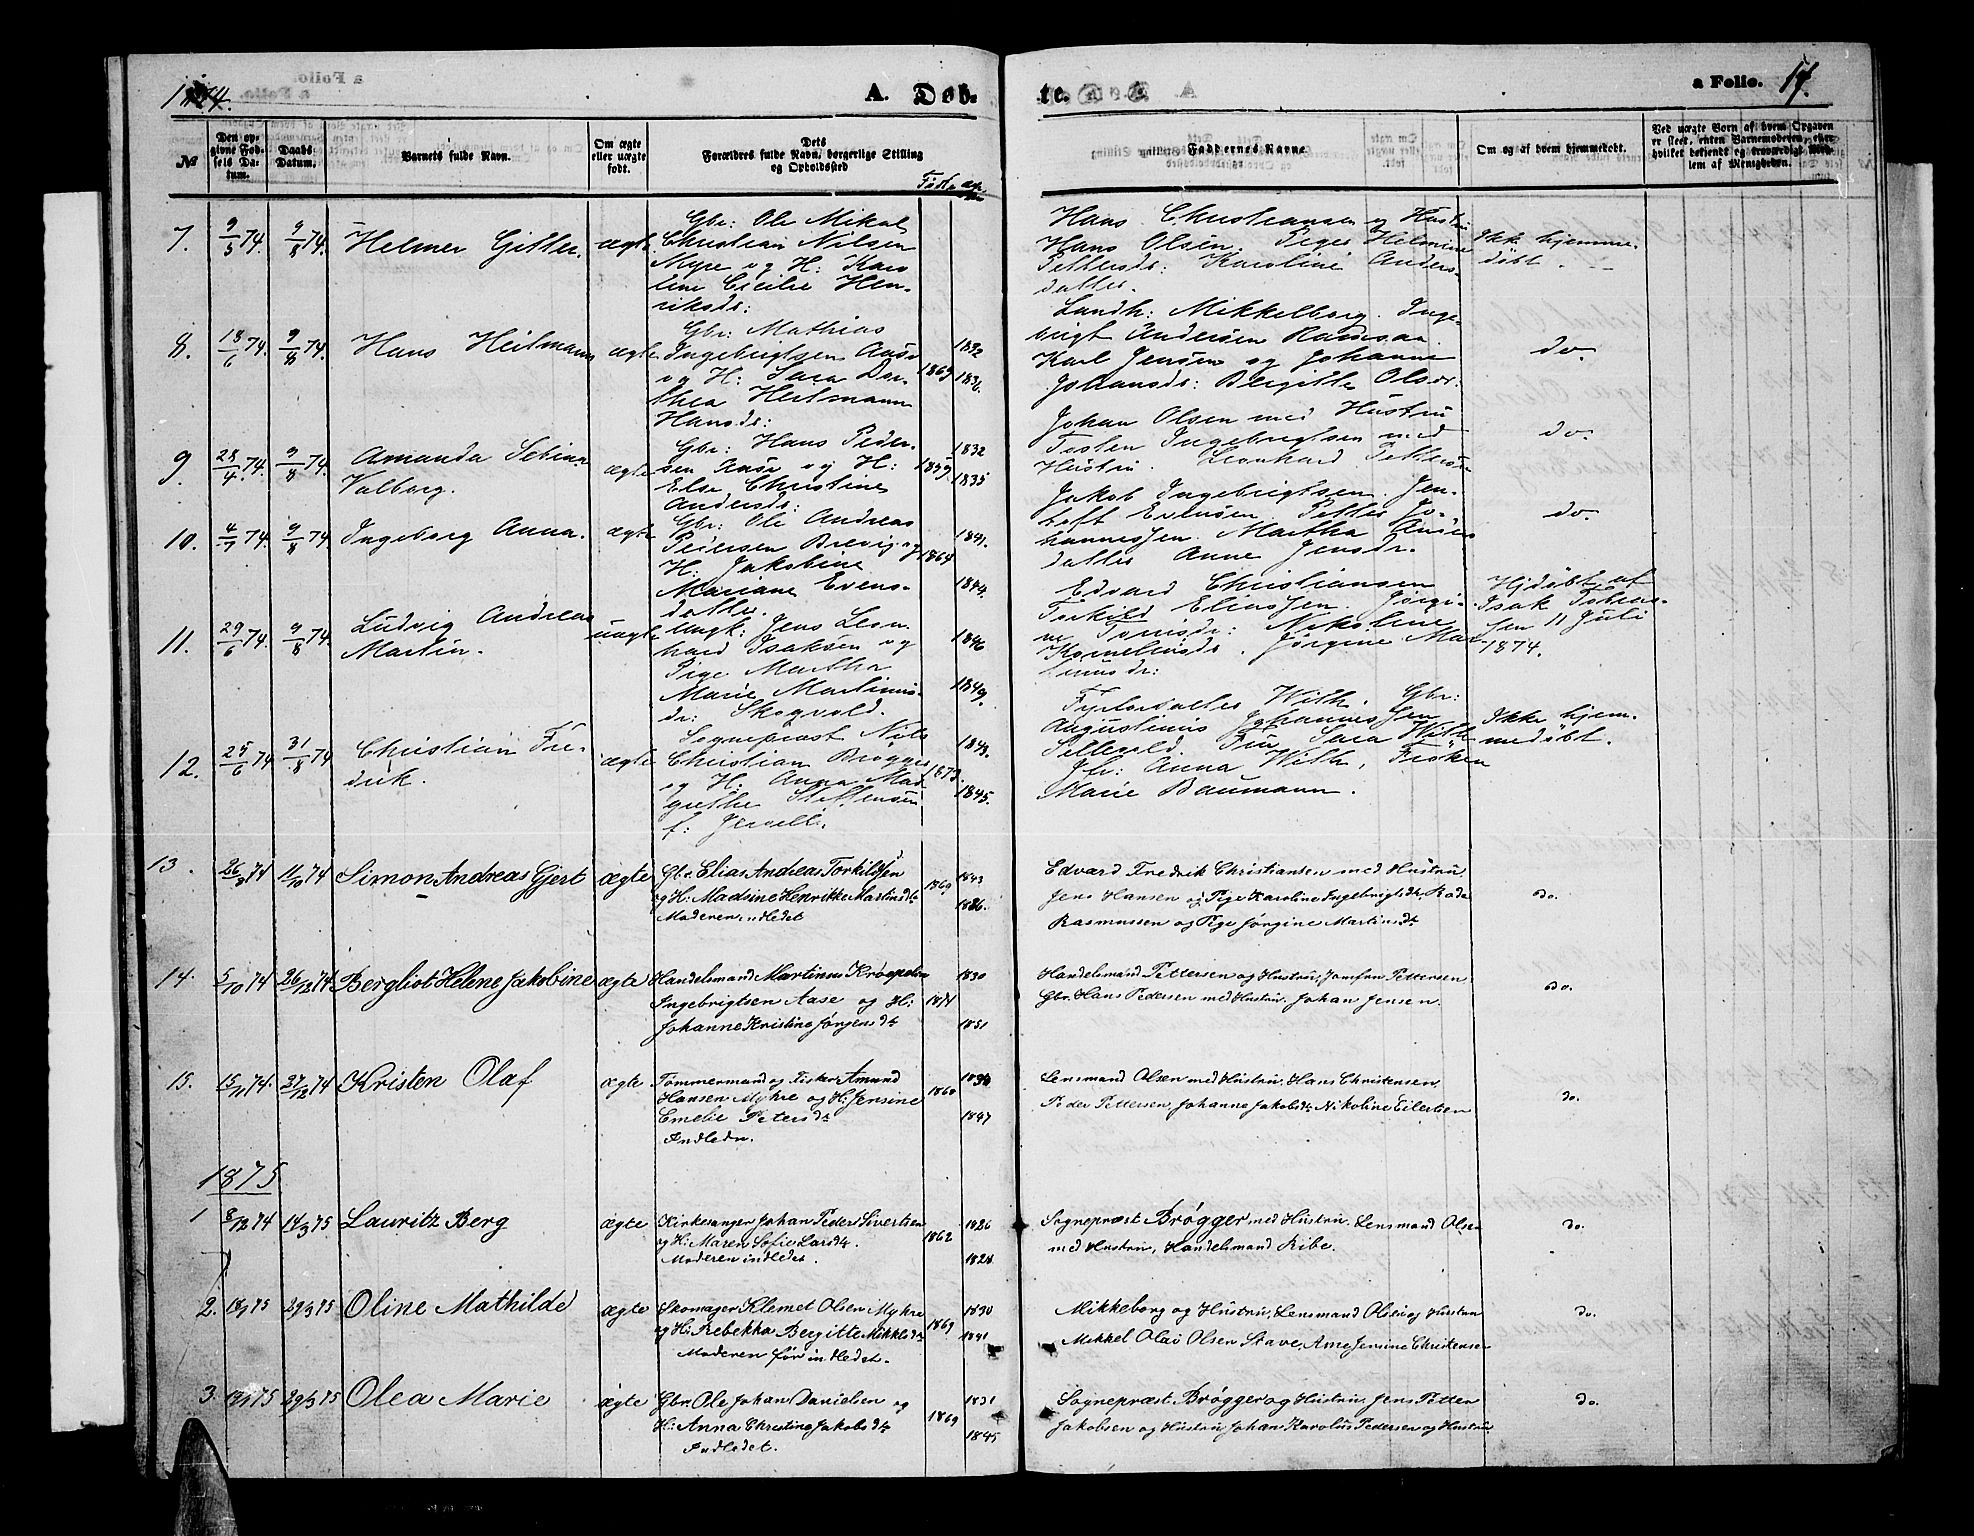 1874.
A. Døb-
te.
a Folio. 17.
№
Den op-
givne Fød-
sels Da-
tum.
Daabs
Datum.
Barnets fulde Navn.
Om ægte
eller uægte
født.
Dets
Forældres fulde Navn, borgerlige Stilling
og Opholdssted
Faddernes Navne.
Om og af hvem hjemmedøbt.
Ved uægte Børn af hvem Opgaven
er skeet, enten Barnemoderen, eller
hvilket bekjendt og troværdigt Med-
lem af Menigheden.
7. 9/5 74. 9/8 74. Helmer Gitter. ægte
Gbr: Ole Mikal
Christian Nilsen
Myre og H: Karo
line Cecilie Hen-
riksdr:
Hans Christiansen og Hustru
Hans Olsen. Piger Helmine
Pettersdr: Karoline Anders-
datter.
Ikke hjemme-
døbt.
8. 18/6 74. 9/8 74. Hans Heilmann ægte
Gbr: Mathias
Ingebrigtsen Aase
og H: Sara Dor-
thea Heilmann
Hansdr:
1869 1832 1836.
Landh: Mikkelborg. Inge-
brigt Andersen Ramsaa.
Karl Jensen og Johanne
Johansdr: Bergitte Olsdr:
do.
9. 28/4 74. 9/8 74. Amanda Selina
Valborg. ægte
Gbr: Hans Peder-
sen Aase og H:
Else Christine
Andersdr:
1859. 1832 1835
Johan Olsen med Hustru
Tosten Ingebrigtsen med
Hustru. Leonhard Pettersen
do.
10. 4/7 74. 9/8 74. Ingeborg Anna. ægte
Gbr: Ole Andreas
Pedersen Brevig og
H: Jakobine
Mariane Evens-
datter.
1864 1841. 1844.
Jakob Ingebrigtsen. Jen-
toft Evensen. Petter Jo-
hannessen. Martha
datter Anne Jensdr.
do.
11. 29/6 74. 9/8 74. Ludvig Andreas
Martin. uægte
Ungk: Jens Leon
hard Isaksen og
Pige Martha
Marie Martinus-
dr: Skogvold.
1846 1849.
Edvard Christiansen
Torkild Eliassen. Jørgi-
ne Tørrisdr: Nikoline
Kornelinsdr. Jørgine Mar
tinusdr:
Hjdøbt af
Isak Tobias-
sen 11 Juli
1874.
12. 25/6 74 31/8 74 Christian Fre-
drik. ægte
Sogneprest Nils
Christian Brøgger
og H. Anna Mar
grethe Steffensen
f:
1873. 1843. 1845.
With. Gbr:
Augustinus Johannessen
Sellevold. Fru Sara With
Jfr: Anna With, Frøken
Marie Baumann.
Ikke hjem-
medøbt.
13. 26/8 74 11/10 74 Simon Andreas Gjert ægte
Gbr. Elias Andreas Torkildsen
og H: Madsine Henrikke Martinsdtr
Moderen indledet
1869 1843 1846.
Edvard Fredrik Christiansen med Hustru
Jens Hansen og Pige Karoline Ingebrigtsdtr,
Rasmussen og Pige Jørgine Martinsdtr
do.
14. 5/10 74 26/12 74 Bergliot Helene Jakobine ægte
Handelsmand Martinus
Ingebrigtsen Aase og H:
Johanne Kristine Jørgensdtr
1871 1830 1851
Handelsmand Pettersen og Hustru, Pettersen
Gbr. Hans Pedersen med Hustru. Johan Jensen.
do.
15. 15/11 74. 27/12 74 Kristen Olaf ægte
Tømmermand og Fisker Amund
Hansen Myhre og H: Jensine
Emelie Petersdtr
Indledn.
1860 1847
Lensmand Olsen med Hustru, Hans Christensen
Peder Pettersen, Johanne Jakobsdtr Nikoline Eilertsen
do.
1875
1 8/12 74 14/3 75 Lauritz Berg ægte
Kirkesanger Johan Peder Sivertsen
og H: Maren Sofie Larsdtr.
Moderen indledet.
1862 1826 1828
Sogneprest Brøgger med Hustru, Lensmand Olsen
med Hustru, Handelsmand Ribe.
do.
2. 18/1 75 29/3 75 Oline Mathilde ægte
Skomager Klemet Olsen Myhre
og H: Rebekka Bergitte Mikkelsdtr
Moderen før indledet.
1869 1830 1841
Mikkelborg og Hustru, Lensmand Olsen og Hustru
Mikkel Olai Olsen Stave, Christensen
do.
3. 75 29/3 75 Olea Marie ægte
Gbr. Ole Johan Danielsen og
H: Anna Christine Jakobsdtr
Indledet.
1869 1831 1845
Sogneprest Brøgger og Hustru Jens Petter
Jakobsen og Hustru, Johan Karolus Pedersen og Hustru
do.